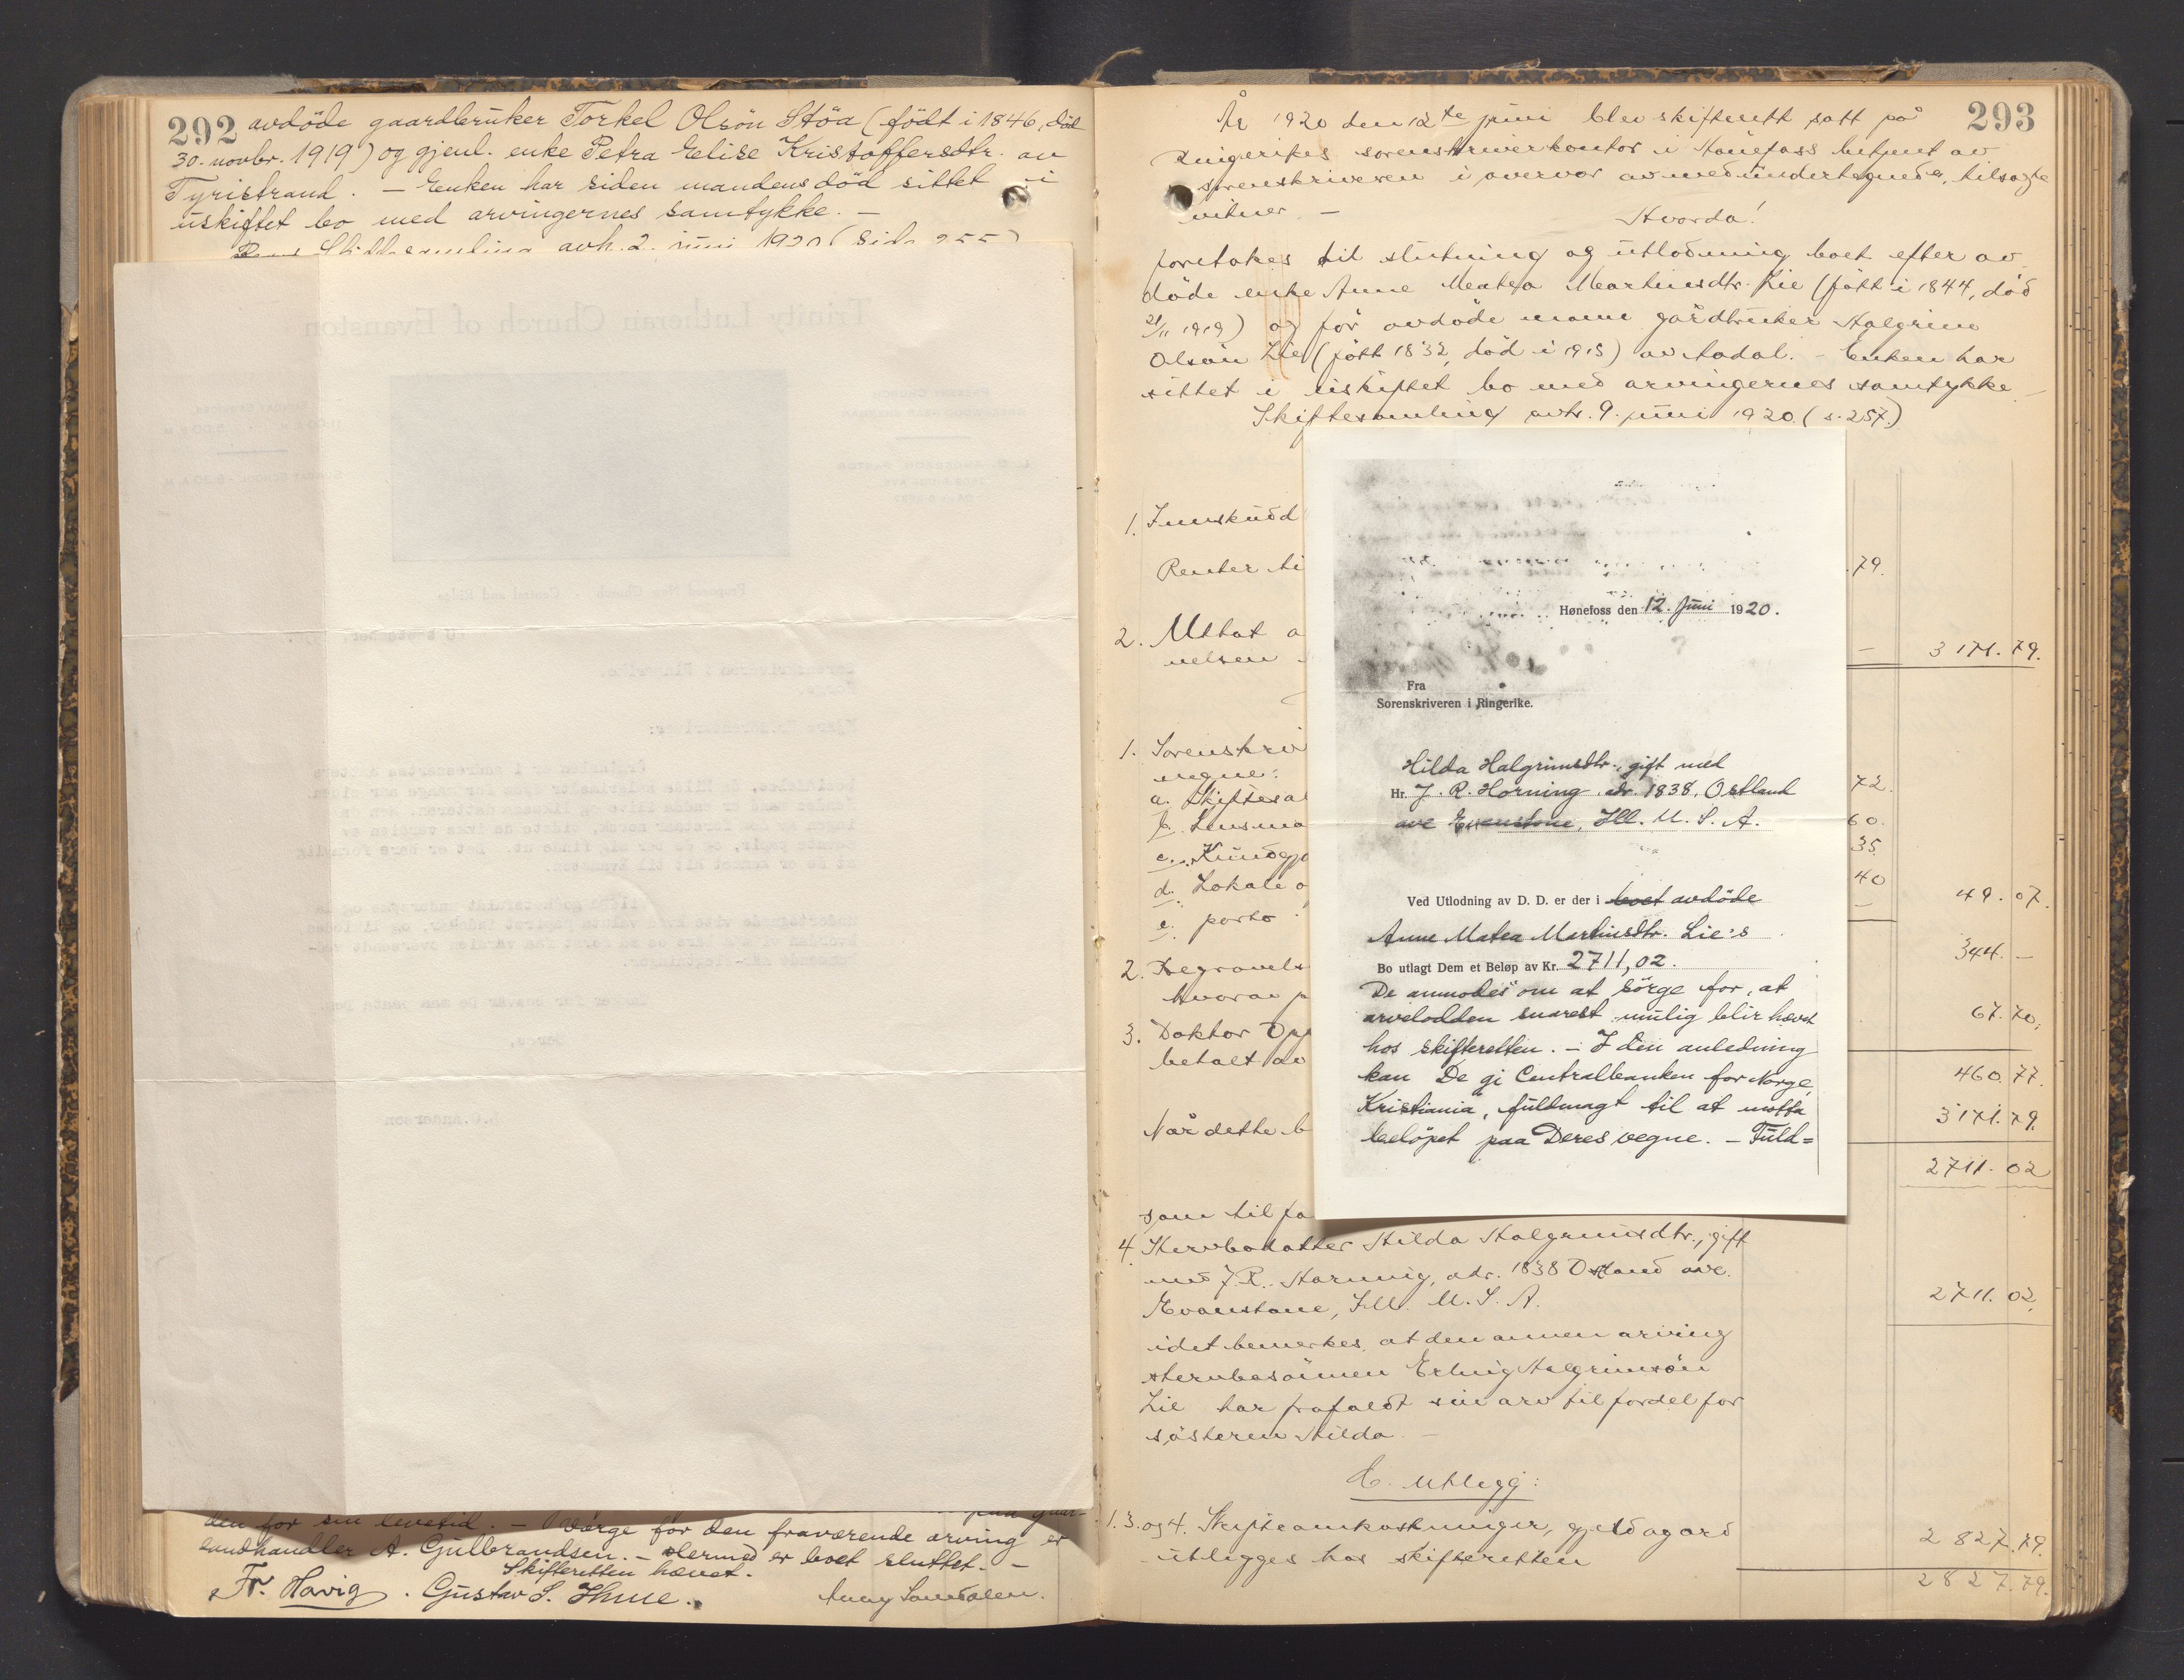 292 avdöde gaardbruker Torkel Olsön Stöa (födt i 1846, död
30. novbr. 1919) og gjenl. enke Petra Elise Kristoffersdtr. av
Tyristrand. — Enken har siden mandens död sittet i
uskiftet bo med arvingernes samtykke. —
avh. 2. juni 1920 (Side 255)
Trinity Lutheran Church of Evanston
Proposed New Church - Central and Ridge
den for sin levetid. — Værge for den fraværende arving er
landhandler A. Gulbrandsen. — Hermed er boet sluttet. —
Skifteretten hævet.
Fr. Havig . Gustav S. Ihme.
293
År 1920 den 12te juni blev skifterett satt på
Ringerikes sorenskriverkontor i Hönefoss betjent av
sorenskriveren i overvær av medundertegnede, tilsagte
vitner —
Hvorda!
foretokes til slutning og utlodning boet efter av
döde enke Anne Matea Martinsdtr. Lie (født i 1844, död
21/11 1919) og för avdöde mann gårdbruker Halgrim
Olsön Lie (født 1832, död i 1913) av Aadal. — Enken har
sittet i uskiftet bo med arvingernes samtykke. —
Skiftesamling avh. 9. juni 1920. (s. 257.)
1. Innskudd
Renter ti
79.
2. Uttat a
nelsen
— 3171.79.
1. Sorenskriv
a. Skiftesa
72.
b. Lensma
60.
c. Kundgjö
35.
d. Lokale o
40
e. porto
49.07.
2. Begravels
344. —
hvorav p
3. Doktor Opp
67.70.
betalt av
460.77.
Når dette b
3171.79.
2711.02
Hønefoss den 12. juni 1920.
Fra
Sorenskriveren i Ringerike.
Hilda Halgrimsdtr., gift med
Hr. J. R. Horning, adr. 1838, Ostland
ave Evanstone, Ill. U. S. A.
Ved Utlodning av D. D. er der i boet avdöde
Anne Matea Martinsdtr. Lie's
Bo utlagt Dem et Beløp av Kr. 2711,02.
De anmodes om at sörge for, at
arvelodden snarest mulig blir hævet
hos skifteretten. — I den anledning
kan De gi Centralbanken for Norge,
Kristiania, fuldmagt til at motta
belöpet paa Deres vegne. — Fuld=
som til fa
4. Stervbodatter Hilda Halgrimsdtr., gift
med J. R. Horning, adr. 1838 Ostland ave.
Evanstone, Ill. U. S. A.
2711.02.
idet bemerkes, at den annen arving
stervbosönnen Erling Halgrimsön
Lie har frafaldt sin arv til fordel for
sösteren Hilda —
C. Utlegg:
1. 3. og 4. Skifteomkostninger, gjeld og arv
utlegges hos skifteretten
2827.79.
2827.79.